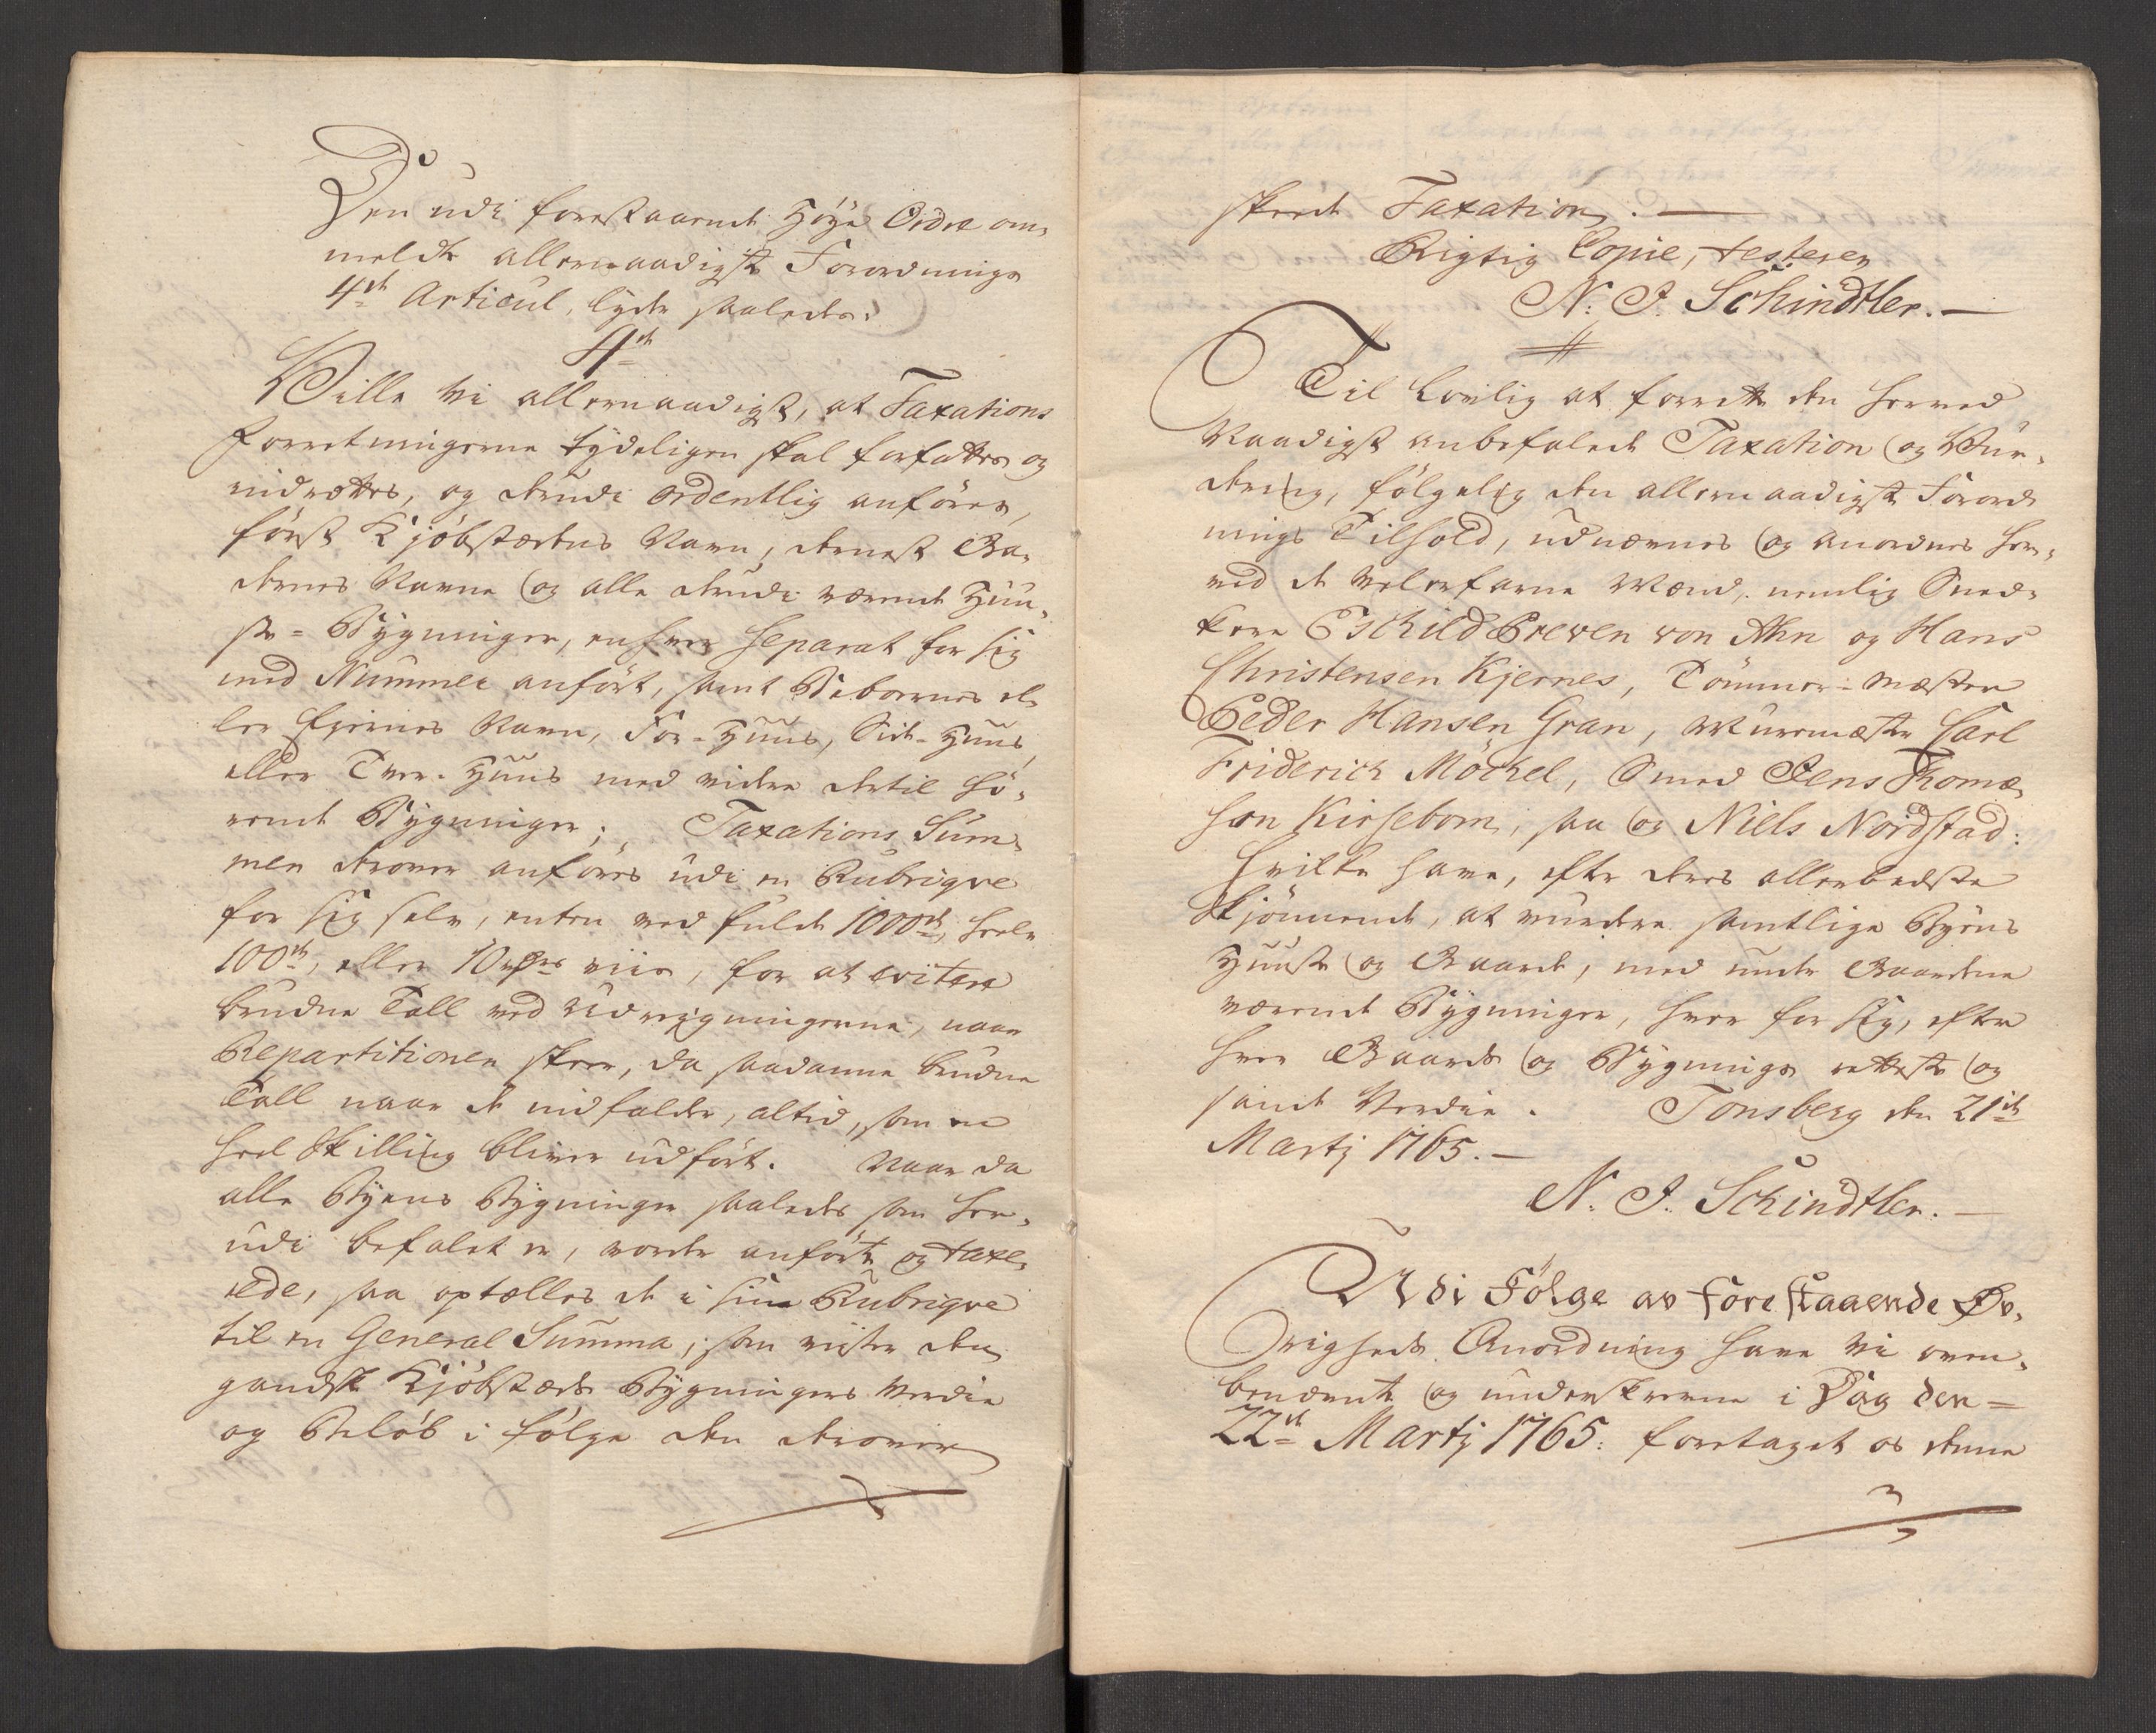 Den udi forestaaende Høye Ordre om-
meldte allernaadigste Forordnings
4de Articul, lyder saaledes:
4de
Wille Vi allernaadigst, at Taxations
Forretningerne tydeligen skal forfattes og
indrettes, og derudi ordentlig anföres,
först Kjöbstædens Navn, dernest Ga-
dernes Navne og alle derudi værende Huu-
se-Bygninger, enhver separat for sig
med Nummer anfört, samt Beboernes el-
ler Eyernes Navn, For-Huus, Side-Huus,
eller Tver-Huus med videre dertil hö-
rende Bygninger; Taxations Sum-
men derover anföres udi en Rubriqve
for sig selv, enten ved fulde 1000de, heele
100de, eller 10 rdrs viis, for at evitere
brudne Tall ved Udregningerne, naar
Repartitionen skeer, da saadanne brudne
Tall naar de indfalder, altid, som en
heel Skilling bliver udfört. Naar da
alle Byens Bygninger saaledes som her-
udi befalet er, vorder anförte og taxe-
rede, saa optælles de i sine Rubriqve
til en General Summa, som viiser den
gandske Kjöbstæds Bygningers Verdie
og Belöb i fölge den derover
skeede Taxation. —
Rigtig Copie, testerer
N: J: Schindtler. —
Til Lovlig at forrette den herved
Naadigst anbefalede Taxation og Vur-
dering, fölgelig den allernaadigste Forord-
nings Tilhold, udnævnes og anordnes her-
ved de velerfarne Mænd, nemlig Sned-
kere Eschild Preven von Ahn og Hans
Christensen Kjernes, Tömmer-Mæster
Peder Hansen Gran, Muurmæster Carl
Friderich Möckel, Smed Jens Thomæ-
sön Kirsebom, saa og Niels Nordstad:
Hvilke have, efter deres allerbedste
Skjönnende, at vurdere samtlige Byens
Huuse og Gaarde, med under Gaardene
værende Bygninger, hver for sig, efter
hver Gaards og Bygnings retteste og
sande Verdie. Tonsberg den 21de
Martj 1765. —
N: J: Schindtler. —
Udi Fölge av forestaaende Øv-
righeds Anordning have Vi oven-
benævnte og underskrevne i Dag den =
22de Martj 1765: foretaget os denne